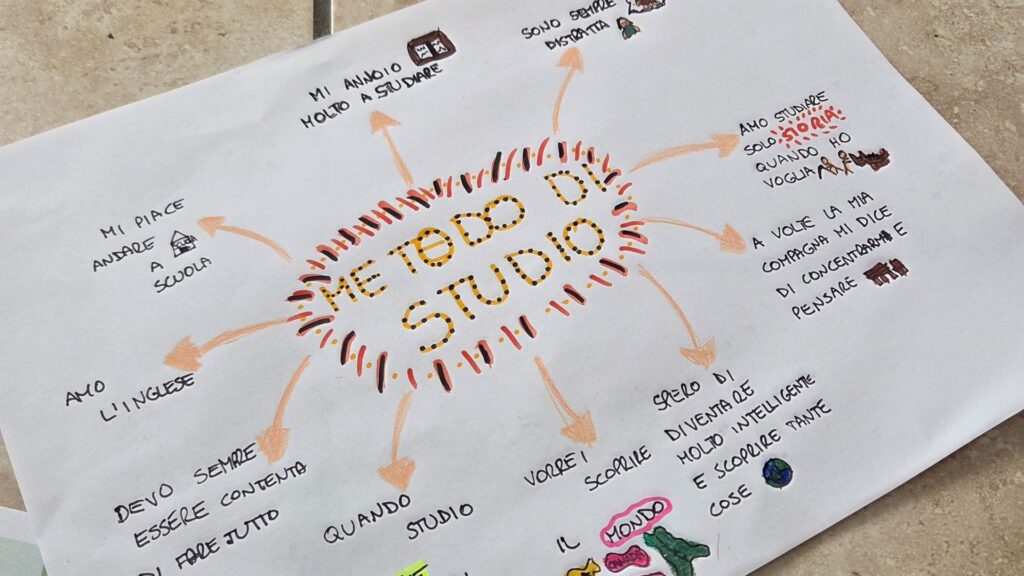 METODO DI
STUDIO
MI ANNOIO
MOLTO A STUDIARE
SONO SEMPRE
DISTRATTA
AMO STUDIARE
SOLO STORIA
QUANDO HO
VOGLIA
A VOLTE LA MIA
COMPAGNA MI DICE
DI CONCENTRARMI E
PENSARE
SPERO DI
DIVENTARE
MOLTO INTELLIGENTE
E SCOPRIRE TANTE
COSE
VORREI
SCOPRIRE
IL MONDO
QUANDO
STUDIO
DEVO SEMPRE
ESSERE CONTENTA
DI FARE TUTTO
AMO
L'INGLESE
MI PIACE
ANDARE
A
SCUOLA